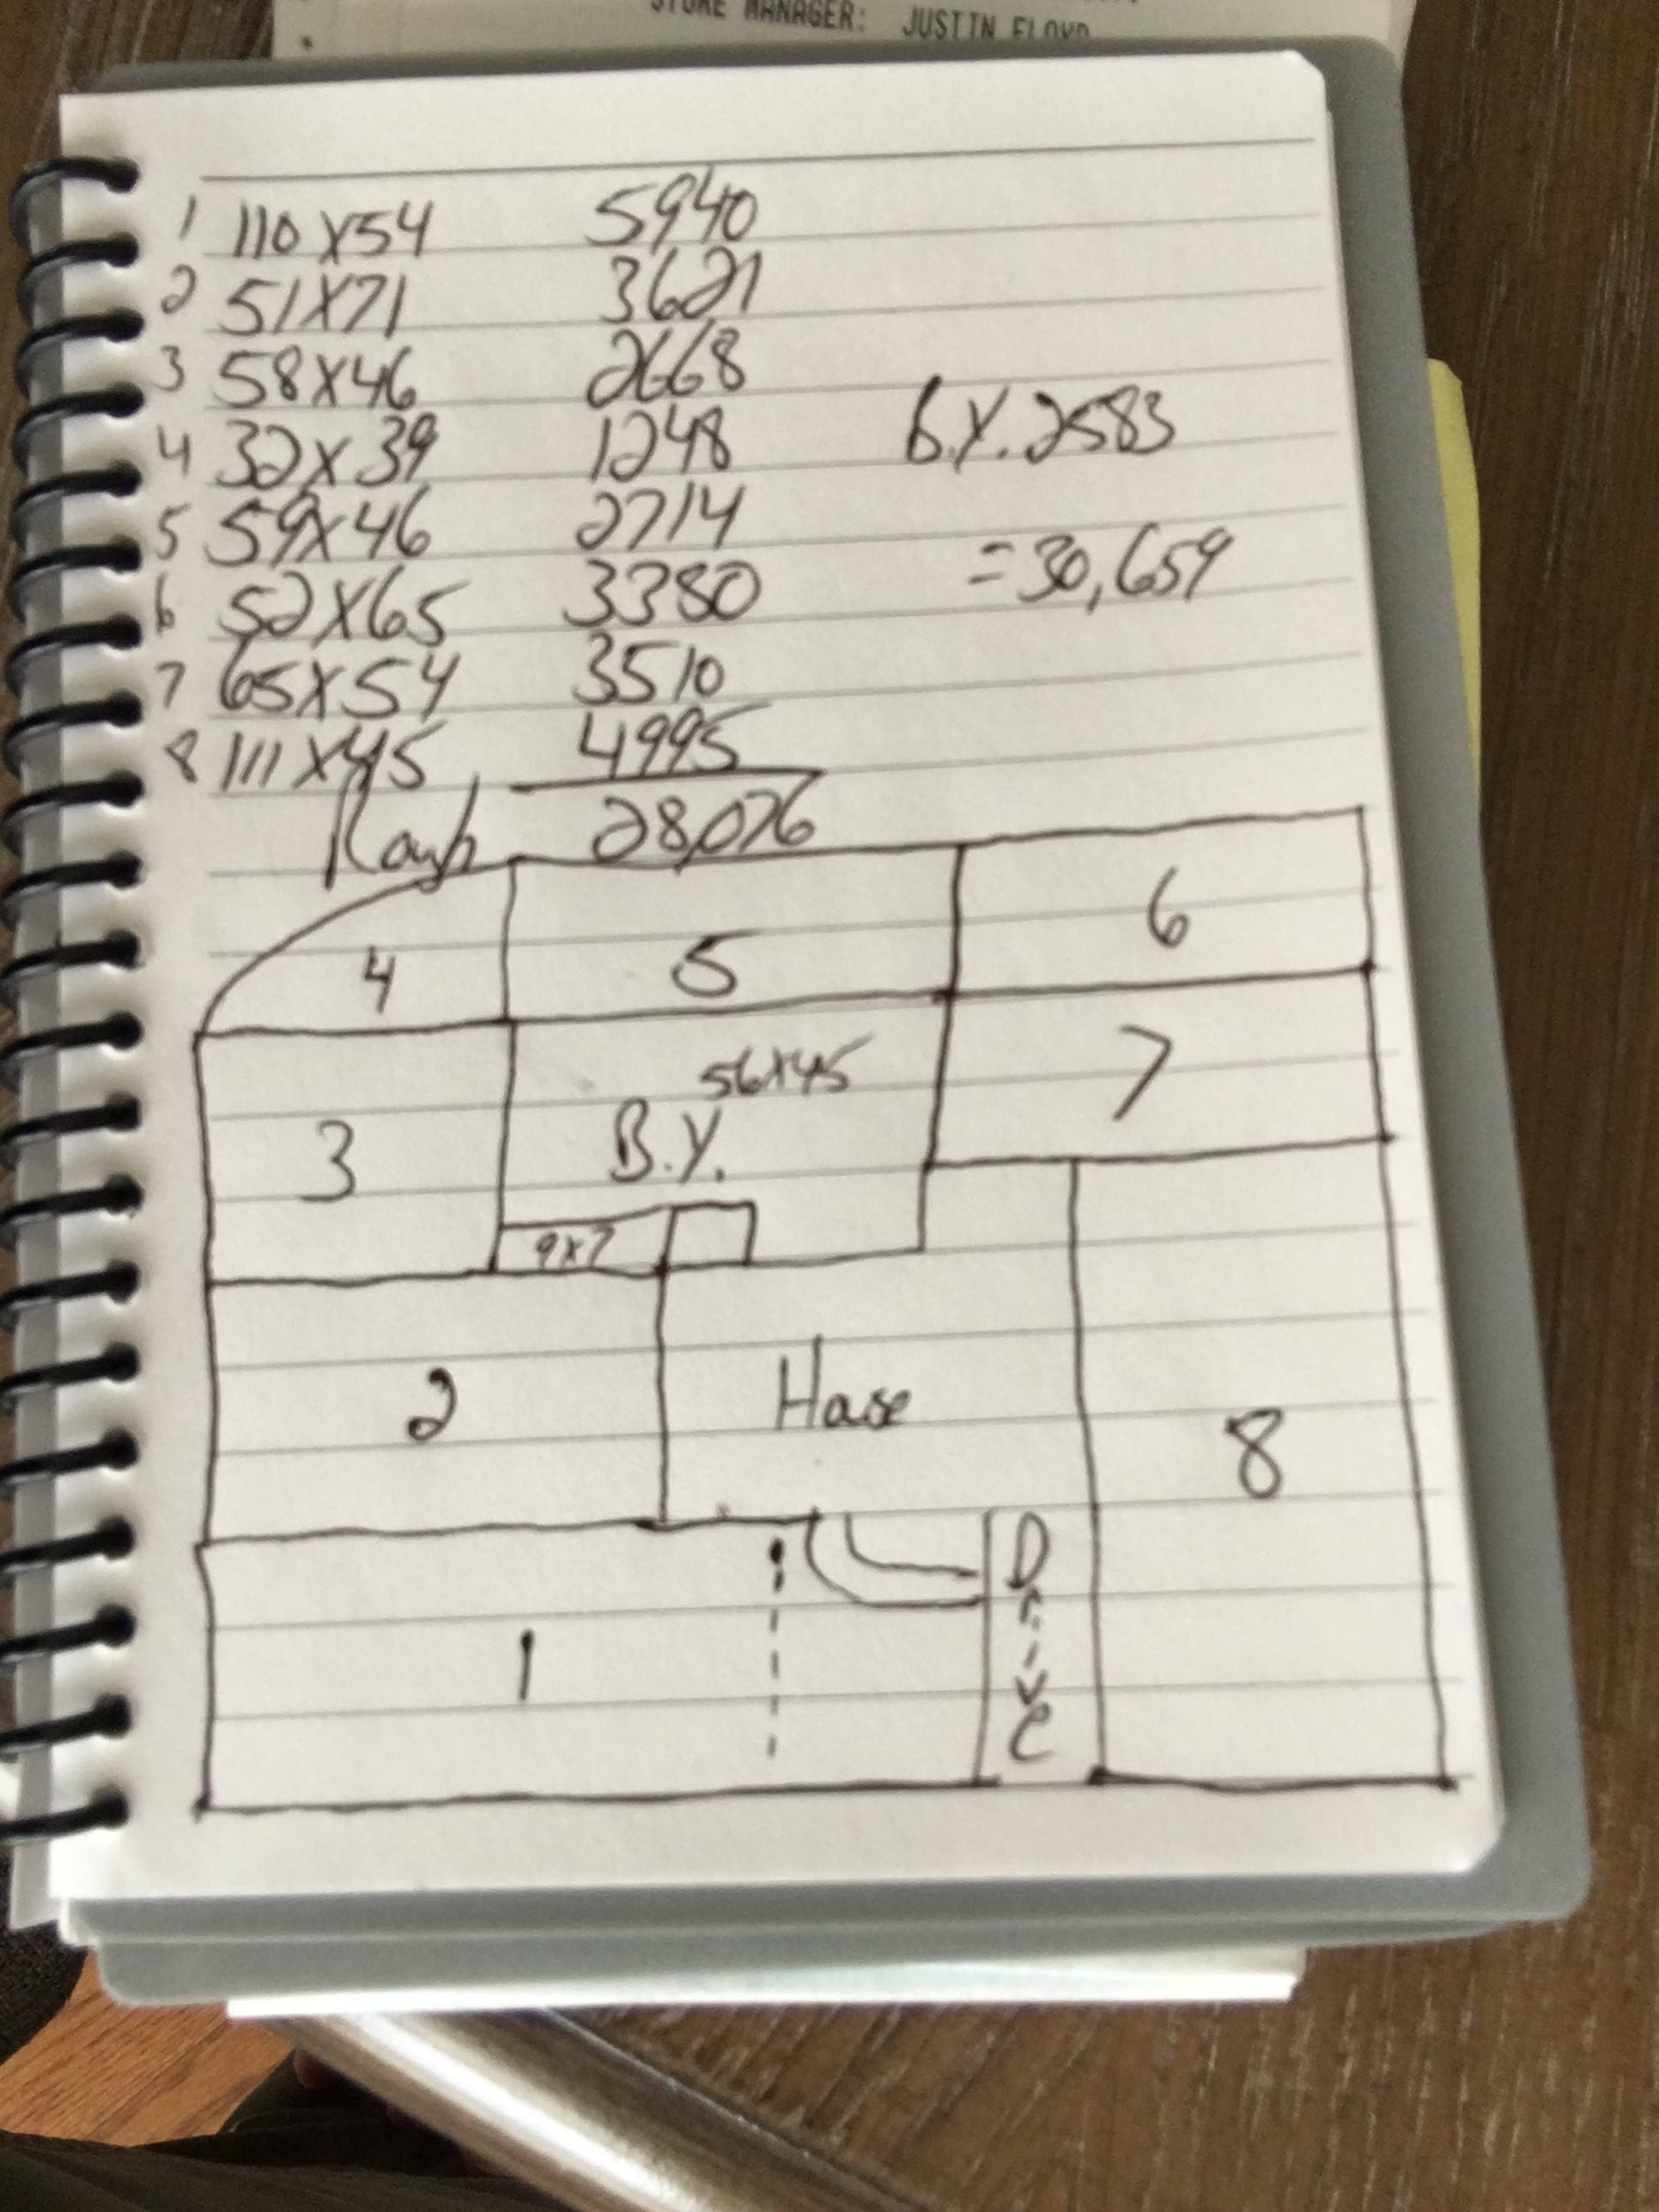 STORE MANAGER: JUSTIN FLOYD
1 110 X 54 5940
2 51 X 71 3621
3 58 X 46 2668
4 32 X 39 1248
B.Y. 2583
5 59 X 46 2714
= 30,659
6 52 X 65 3380
7 65 X 54 3510
8 111 X 45 4995
Rough 28,076
4 5 6
7
56X45
3 B.Y.
9x7
2 House 8
1 Drive